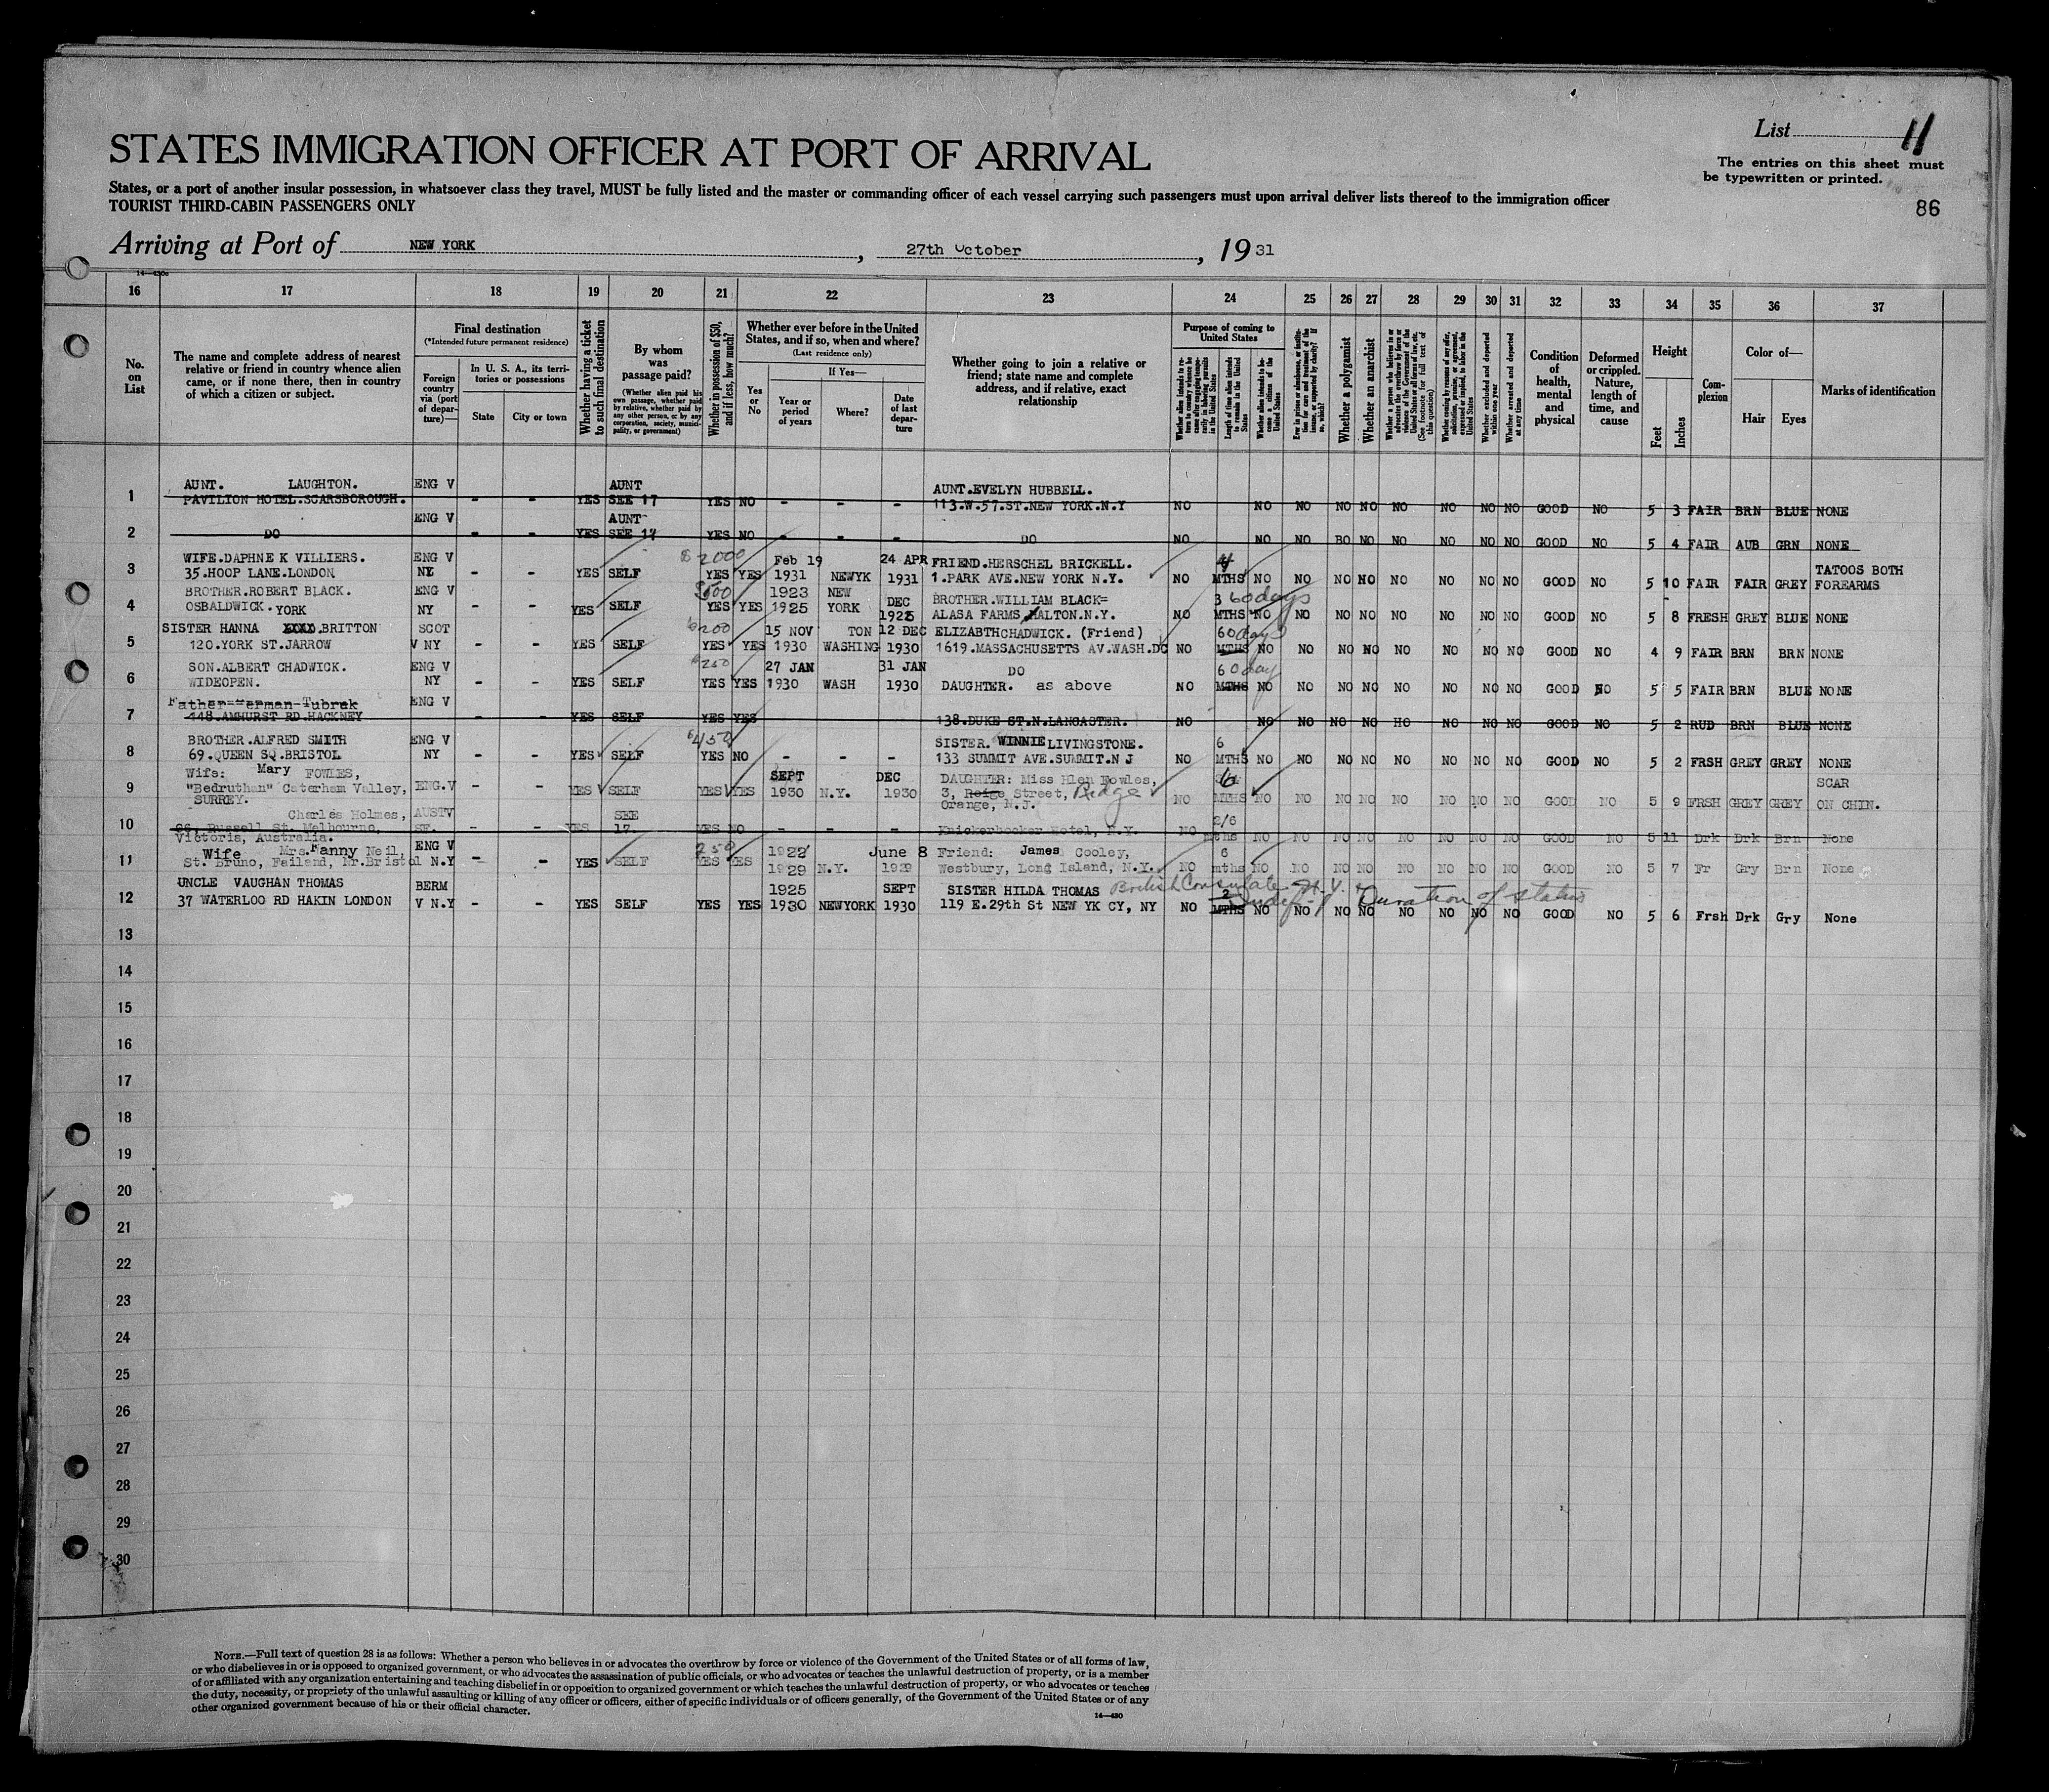 List 11
STATES IMMIGRATION OFFICER AT PORT OF ARRIVAL
The entries on this sheet must
be typewritten or printed.
States, or a port of another insular possession, in whatsoever class they travel, MUST be fully listed and the master or commanding officer of each vessel carrying such passengers must upon arrival deliver lists thereof to the immigration officer
TOURIST THIRD-CABIN PASSENGERS ONLY
86
Arriving at Port of NEW YORK, 27th October, 19 31
16 17 18 19 20 21 22 23 24 25 26 27 28 29 30 31 32 33 34 35 36 37
No. on List
The name and complete address of nearest
relative or friend in country whence alien
came, or if none there, then in country
of which a citizen or subject.
Final destination
(*Intended future permanent residence)
Foreign country via (port of departure)—
In U. S. A., its territories or possessions
State
City or town
Whether having a ticket to such final destination
By whom was passage paid?
(Whether alien paid his own passage, whether paid by relative, whether paid by any other person, or by any corporation, society, municipality, or government)
Whether in possession of $50, and if less, how much?
Whether ever before in the United
States, and if so, when and where?
(Last residence only)
Yes or No
If Yes—
Year or period of years
Where?
Date of last departure
Whether going to join a relative or
friend; state name and complete
address, and if relative, exact
relationship
Purpose of coming to United States
Length of time alien intends to remain in the United States
Whether alien intends to become a citizen of the United States
Whether a polygamist
Whether an anarchist
(See footnote for full text of this question)
Whether arrested and deported at any time
Condition of health, mental and physical
Deformed or crippled. Nature, length of time, and cause
Height
Feet
Inches
Complexion
Color of—
Hair
Eyes
Marks of identification
AUNT. LAUGHTON. ENG V AUNT AUNT.EVELYN HUBBELL.
1 PAVILION HOTEL.SCARSBOROUGH. - - YES SEE 17 YES NO - - - 113.W.57.ST.NEW YORK.N.Y NO NO NO NO NO NO NO NO NO GOOD NO 5 3 FAIR BRN BLUE NONE
ENG V AUNT
2 DO - - YES SEE 17 YES NO - - - DO NO NO NO BO NO NO NO NO NO GOOD NO 5 4 FAIR AUB GRN NONE
WIFE.DAPHNE K VILLIERS. ENG V $2000 Feb 19 24 APR FRIEND.HERSCHEL BRICKELL. 4 TATOOS BOTH
3 35.HOOP LANE.LONDON NY - - YES SELF YES YES 1931 NEWYK 1931 1.PARK AVE.NEW YORK N.Y. NO MTHS NO NO NO NO NO NO NO NO GOOD NO 5 10 FAIR FAIR GREY FOREARMS
BROTHER.ROBERT BLACK. ENG V $500 1923 NEW DEC BROTHER.WILLIAM BLACK= 3 60days
4 OSBALDWICK.YORK NY - - YES SELF YES YES 1925 YORK 1925 ALASA FARMS ALTON.N.Y. NO MTHS NO NO NO NO NO NO NO NO GOOD NO 5 8 FRESH GREY BLUE NONE
SISTER HANNA BRITTON SCOT $200 15 NOV TON 12 DEC ELIZABTHCHADWICK. (Friend) 60days
5 120.YORK ST.JARROW V NY - - YES SELF YES YES 1930 WASHING 1930 1619.MASSACHUSETTS AV.WASH.DC NO MTHS NO NO NO NO NO NO NO NO GOOD NO 4 9 FAIR BRN BRN NONE
SON.ALBERT CHADWICK. ENG V $250 27 JAN 31 JAN DO 60day
6 WIDEOPEN. NY - - YES SELF YES YES 1930 WASH 1930 DAUGHTER. as above NO MTHS NO NO NO NO NO NO NO NO GOOD NO 5 5 FAIR BRN BLUE NONE
Father=Herman-Tubruk ENG V
7 448.AMHURST RD.HACKNEY YES SELF YES YES 138.DUKE ST.N.LANCASTER. NO NO NO NO NO NO NO NO NO GOOD NO 5 2 RUD BRN BLUE NONE
BROTHER.ALFRED SMITH ENG V $450 SISTER. WINNIE LIVINGSTONE. 6
8 69.QUEEN SQ.BRISTOL NY - - YES SELF YES NO - - - 133 SUMMIT AVE.SUMMIT.N J NO MTHS NO NO NO NO NO NO NO NO GOOD NO 5 2 FRSH GREY GREY NONE
Wife: Mary FOWLES, SEPT DEC DAUGHTER: Miss Hlen Fowles, 6 SCAR
9 "Bedruthan" Caterham Valley, ENG.V - - YES SELF YES YES 1930 N.Y. 1930 3, Reige Street, Ridge NO MTHS NO NO NO NO NO NO NO NO GOOD NO 5 9 FRSH GREY GREY ON CHIN.
SURREY. Orange, N.J.
Charles Holmes, AUSTV SEE 2/6
10 66, Russell St. Melbourne, SF. - - YES 17. YES NO - - - Knickerbocker Hotel, N.Y. NO mths NO NO NO NO NO NO NO NO GOOD NO 5 11 Drk Drk Brn None
Victoria, Australia.
Wife Mrs.Fanny Neil, ENG V 250 1922 June 8 Friend: James Cooley, 6
11 St. Bruno, Failand, Nr.Bristol N.Y - - YES SELF YES YES 1929 N.Y. 1929 Westbury, Long Island, N.Y. NO mths NO NO NO NO NO NO NO NO GOOD NO 5 7 Fr Gry Brn None
UNCLE VAUGHAN THOMAS BERM 1925 SEPT SISTER HILDA THOMAS British Consulate N.Y. 2 Duration of status
12 37 WATERLOO RD HAKIN LONDON V N.Y - - YES SELF YES YES 1930 NEWYORK 1930 119 E.29th St NEW YK CY, NY NO MTHS NO NO NO NO NO NO NO NO GOOD NO 5 6 Frsh Drk Gry None
13
14
15
16
17
18
19
20
21
22
23
24
25
26
27
28
29
30
NOTE.—Full text of question 28 is as follows: Whether a person who believes in or advocates the overthrow by force or violence of the Government of the United States or of all forms of law,
or who disbelieves in or is opposed to organized government, or who advocates the assassination of public officials, or who advocates or teaches the unlawful destruction of property, or is a member
of or affiliated with any organization entertaining and teaching disbelief in or opposition to organized government or which teaches the unlawful destruction of property, or who advocates or teaches
the duty, necessity, or propriety of the unlawful assaulting or killing of any officer or officers, either of specific individuals or of officers generally, of the Government of the United States or of any
other organized government because of his or their official character.
14—430